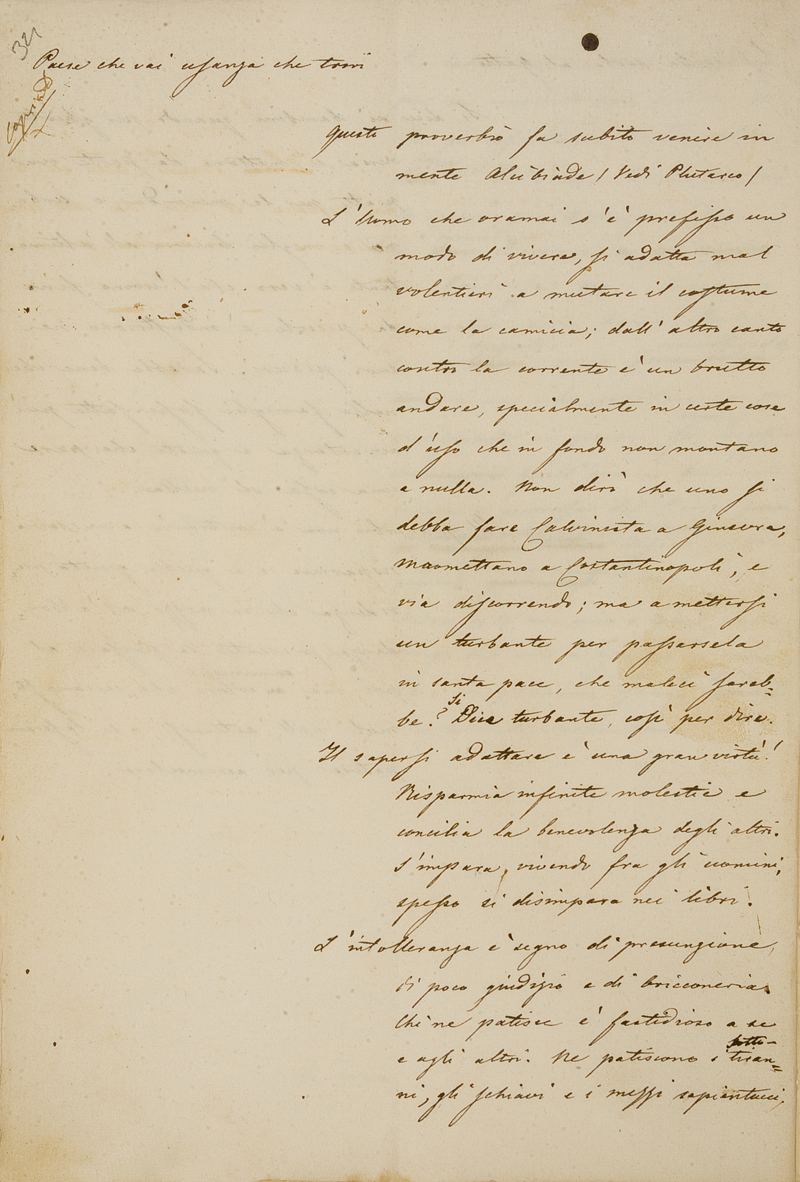 321
Paese che vai usanza che trovi
Copiato
Questo proverbio fa subito venire in
mente Alcibiade / Vedi Plutarco /
L'Uomo che oramai s'è prefisso un
modo di vivere, si adatta mal
volentieri a mutare il costume
come la camicia; dall'altro canto
contro la corrente è un brutto
andare, specialmente in certe cose
d'uso che in fondo non montano
a nulla. Non dirò che uno si
debba fare Calvinista a Ginevra,
Maomettano a Costantinopoli, e
via discorrendo; ma a mettersi
un turbante per passarsela
in santa pace, che male ci sareb=
be? Si Dice turbante, così per dire.
Il sapersi adattare è una gran virtù!
Risparmia infinite molestie e
concilia la benevolenza degli altri.
S'impara, vivendo fra gli uomini,
spesso si disimpara nei libri.
L'intolleranza è segno di presunzione,
di poco giudizio e di bricconeria.
Chi ne patisce è fastidioso a se
e agli altri. Ne patiscono i sotto-tiran=
ni, gli schiavi e i messi sapientucci,